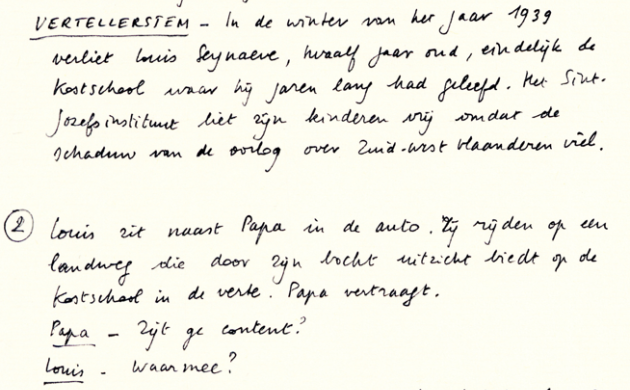 VERTELLERSTEM - In de winter van het jaar 1939
verliet Louis Seynaeve, twaalf jaar oud, eindelijk de
kostschool waar hij jaren lang had geleefd. Het Sint-
Jozefsinstituut liet zijn kinderen vrij omdat de
schaduw van de oorlog over Zuid-West Vlaanderen viel.
2 Louis zit naast Papa in de auto. Zij rijden op een
landweg die door zijn bocht uitzicht biedt op de
kostschool in de verte. Papa vertraagt.
Papa - Zijt ge content?
Louis - Waarmee?